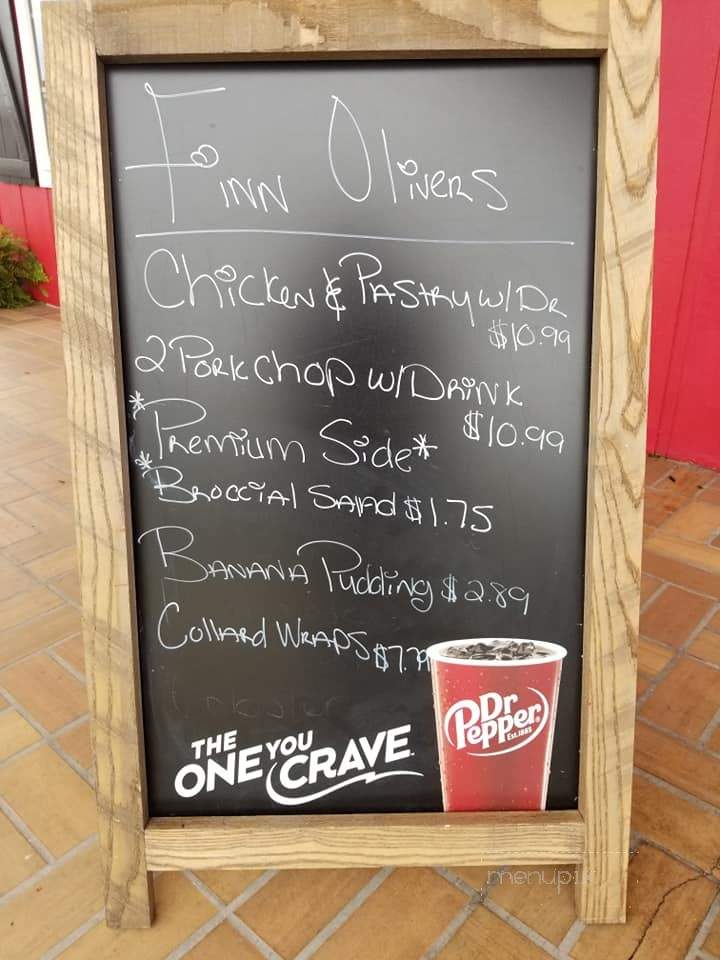 Finn Olivers
Chicken & Pastry w/Dr
$10.99
2 Pork Chop w/Drink
$10.99
*Premium Side*
*Broccial Salad $1.75
Banana Pudding $2.89
Collard Wraps
THE
ONE YOU
CRAVE
Dr
Pepper
Est.1885
menupix